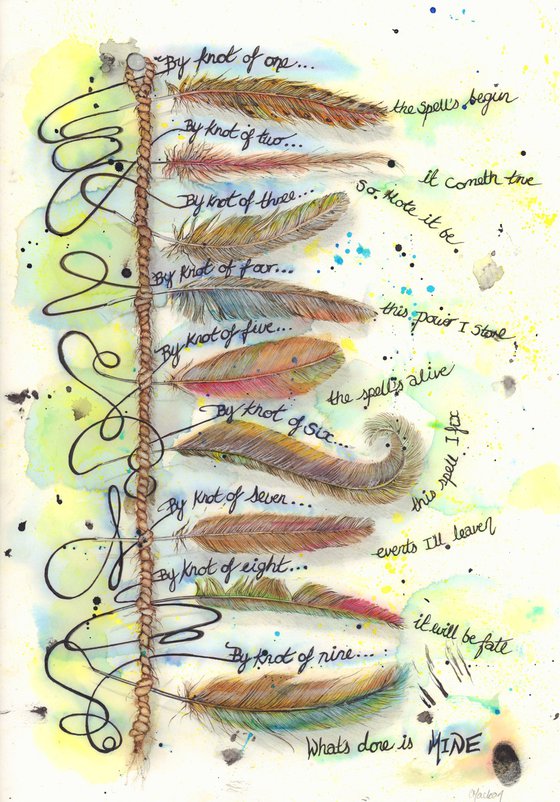 By knot of one...
the spell's begun
By Knot of two...
it cometh true
By Knot of three...
So Mote it be.
By Knot of four...
this power I store
By Knot of five...
the spell's alive
By Knot of Six....
this spell I fix
By Knot of Seven...
events I'll leaven
By Knot of eight...
it will be fate
By Knot of nine....
What's done is MINE